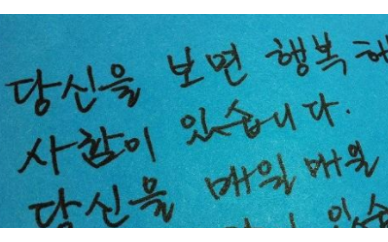 당신을 보면 행복해
사람이 있습니다.
당신을 매일매일
있습